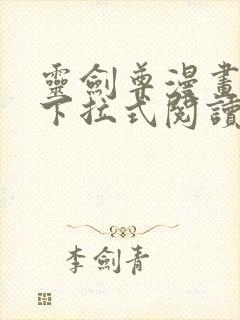 靈劍尊漫畫
下拉式閱讀
李劍青